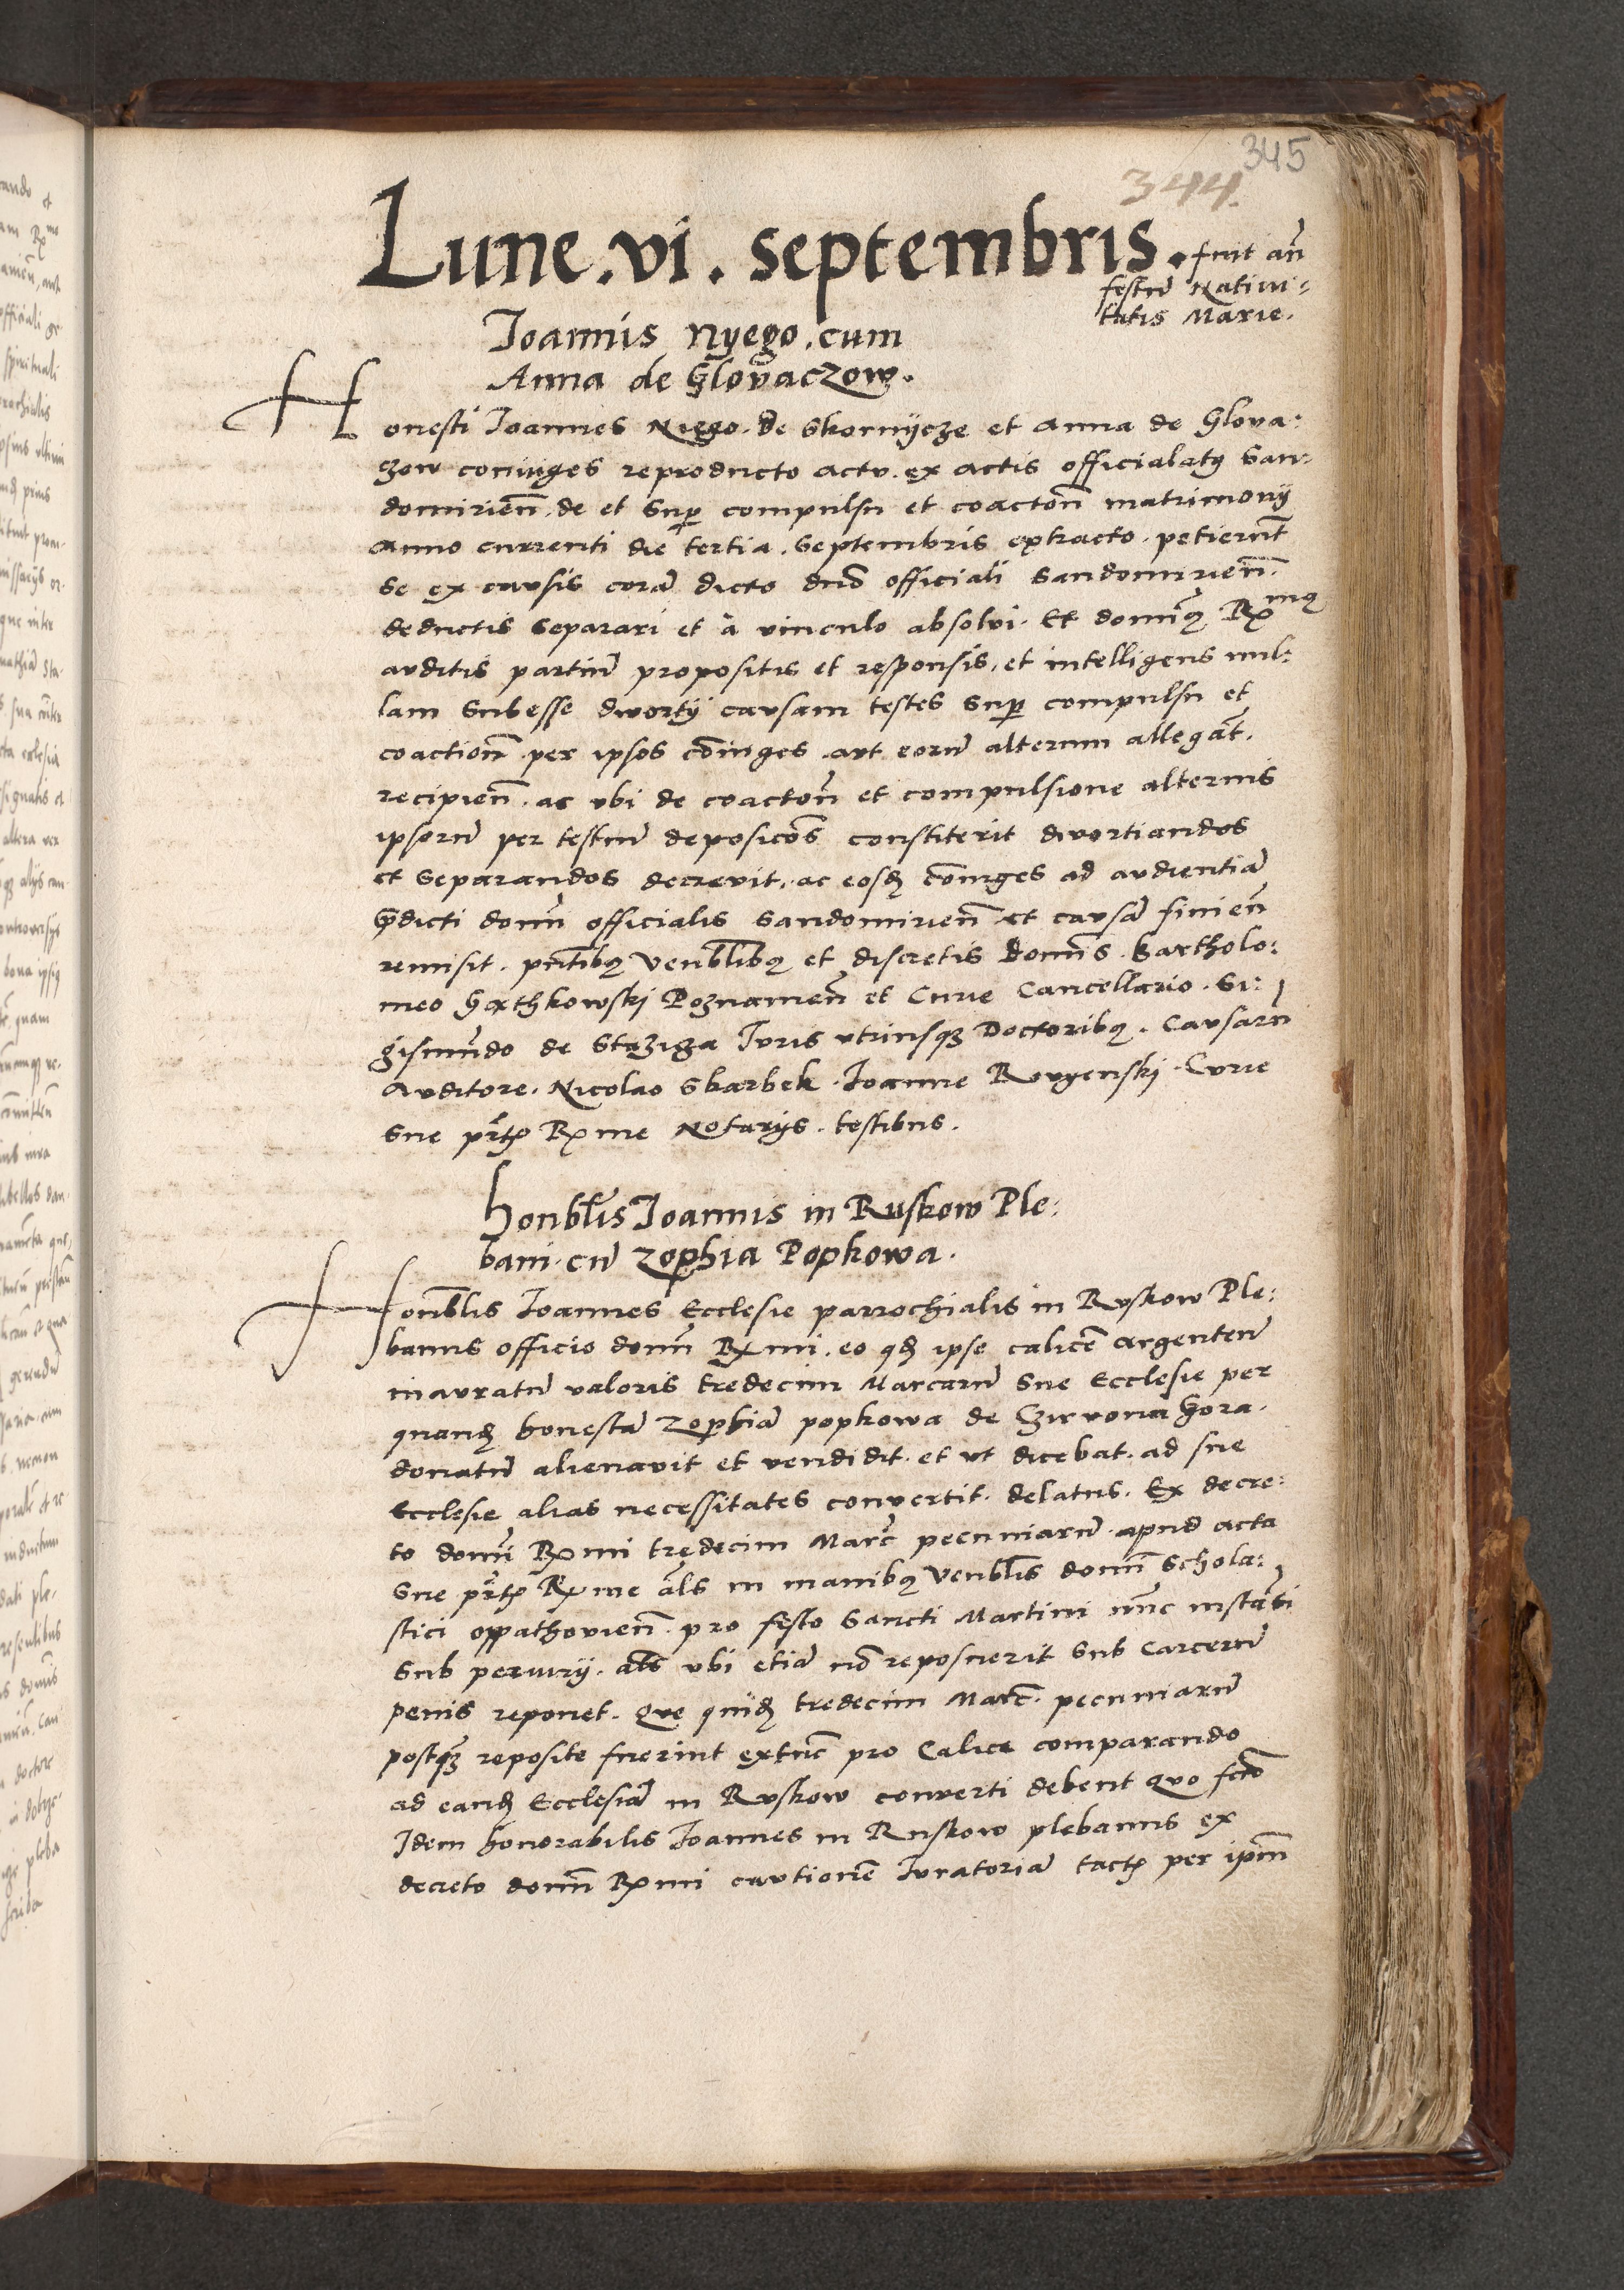 345
344.
Lune . vi . septembris . fuit añ
festũ Natiui-
tatis Marie.
Joannis Nyego . cum
Anna de Glovaczow.
Honesti Joannes Niego de Skornijcze et Anna de Glova:
czow coniuges reproducto actu . ex actis officialatꝰ San-
domirieñ . de et suꝑ compulsu et coactoñ matrimonij
Anno currenti die tertia . Septembris extracto . petierũt
se ex causis corã dicto dño officiali Sandomirieñ
deductis separari et a vinculo absolvi . Et domiñꝰ Rxmꝰ
auditis partiũ propositis et responsis, et intelligens nul:
lam subesse divortij causam testes suꝑ compulsu et
coactioñ per ipsos cõiuges aut eorũ alterum allegãt .
recipieñ . ac vbi de coactoñ et compulsione alternis
ipsorũ per testiũ deposicoẽs constiterit divortiandos
et separandos decrevit, ac eosdẽ cõiuges ad audientiã
p̃dicti domñ officialis Sandomirieñ et causã finieñ
remisit . pñtibꝰ venblĩbꝰ et discretis Domĩs . Bartholo:
meo Ganthkowskj Poznanieñ et Curie Cancellario . Si:
gismũdo de Stęzicza Juris vtriusqꝫ Doctoribꝰ . Causarũ
Auditore . Nicolao Skarbek . Joanne Rougenskj . Curie
Sue pr̃tis Rxme Notarijs . testibus .
Honblĩs Joannis in Ruskow Ple:
bani . cũ Zophia Popkowa .
Honblĩs Joannes Ecclesie parrochialis in Ruskow Ple:
banus officio domñ Rxmi . eo qđ ipse calicẽ argenteũ
inauratũ valoris tredecim Marcarũ Sue Ecclesie per
quandã honestã Zophiã popkowa de Czirvona Gora .
donatũ alienavit et vendidit . et vt dicebat . ad sue
Ecclesie alias necessitates convertit . delatus . Ex decre:
to domñ Rxmi tredecim Marc̃ pecuniarũ . apud acta
Sue pr̃tis Rxme al̃s in manibꝰ Venblĩs domñ Schola:
stici oppathovieñ . pro festo Sancti Martini nũc instãti
sub periurij . al̃s vbi etiã nõ reposuerit sub Carcerũ
penis reponet . Que quidẽ tredecim Marc̃ . pecuniarũ
postqꝫ reposite fuerint extũc pro Calice comparando
ad eandẽ Ecclesiã in Ruskow converti debent Quo fcõ
Idem honorabilis Joannes in Ruskow plebanus ex
decreto domñ Rxmi cautionẽ Juratoriã tactis per ipm̃